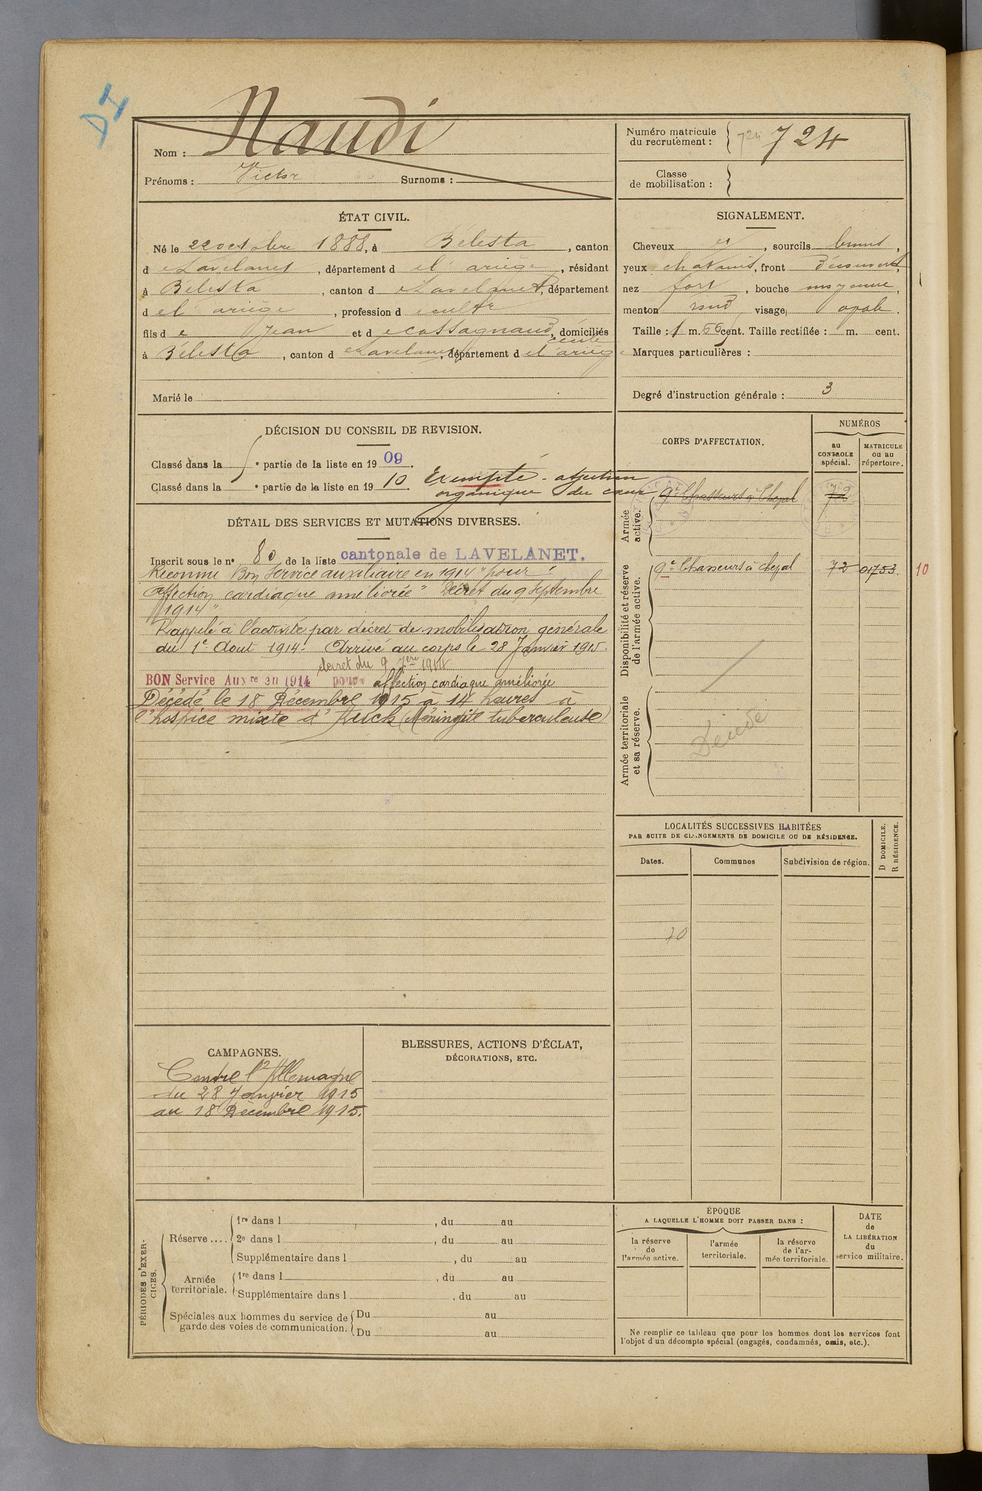 DI
Nom : Naudi
Prénoms : Victor Surnoms :
Numéro matricule du recrutement : 724 724
Classe de mobilisation :
ÉTAT CIVIL.
Né le 22 octobre 1888, à Bélesta, canton
d e Lavelanet, département d e l'ariège, résidant
à Bélesta, canton d e Lavelanet, département
d e l'ariège, profession d e cultr
fils d e Jean et d e Cassagnaud, domiciliés
à Bélesta, canton d e Lavelanet, département d e l'ariège
Marié le
SIGNALEMENT.
Cheveux et, sourcils bruns,
yeux chatains, front Découvert,
nez fort, bouche moyenne,
menton rond, visage, oval.
Taille : 1 m. cent. Taille rectifiée : m. cent.
Marques particulières :
Degré d'instruction générale : 3
DÉCISION DU CONSEIL DE REVISION.
Classé dans la e partie de la liste en 19 09.
Classé dans la e partie de la liste en 19 10 Exempté - affection
organique du cœur
DÉTAIL DES SERVICES ET MUTATIONS DIVERSES.
Inscrit sous le n° 80 de la liste cantonale de LAVELANET.
Reconnu Bon Service auxiliaire en 1914 "pour
affection cardiaque améliorée" Décret du 9 septembre
1914"
Rappelé à l'activité par décret de mobilisation générale
du 1er Aout 1914. Arrivé au corps le 28 Janvier 1915
décret du 9 7bre 1914
BON Service Auxre en 1914 pour affection cardiaque améliorée
Décédé le 18 Décembre 1915 à 14 heures à
l'hospice mixte d'Auch (Méningite tuberculeuse)
CORPS D'AFFECTATION.
NUMÉROS
au CONTROLE spécial.
MATRICULE ou au répertoire.
Armée active.
9e Chasseurs à Cheval 72
Disponibilité et réserve de l'armée active.
9e Chasseurs à cheval 72 01753 10
Armée territoriale et sa réserve.
Décédé
LOCALITÉS SUCCESSIVES HABITÉES
PAR SUITE DE CHANGEMENTS DE DOMICILE OU DE RÉSIDENCE.
Dates. Communes Subdivision de région. D DOMICILE. R RÉSIDENCE.
CAMPAGNES.
Contre l'Allemagne
du 28 Janvier 1915
au 18 Décembre 1915.
BLESSURES, ACTIONS D'ÉCLAT,
DÉCORATIONS, ETC.
PÉRIODES D'EXERCICES.
Réserve ....
1re dans l , du au
2e dans l , du au
Supplémentaire dans l , du au
Armée territoriale.
1re dans l , du au
Supplémentaire dans l , du au
Spéciales aux hommes du service de garde des voies de communication.
Du au
Du au
ÉPOQUE
A LAQUELLE L'HOMME DOIT PASSER DANS :
la réserve de l'armée active.
l'armée territoriale.
la réserve de l'armée territoriale.
DATE de LA LIBÉRATION du service militaire.
Ne remplir ce tableau que pour les hommes dont les services font
l'objet d'un décompte spécial (engagés, condamnés, omis, etc.).